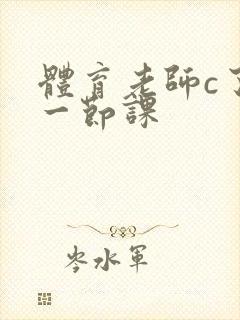 體育老師c了
一節課
岑水軍